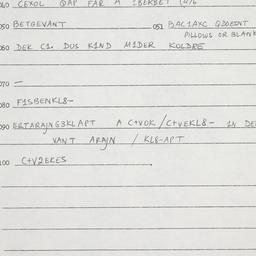 040 CEXOL QAP FAR A
050 BETGEVANT 051 BAC1AXC
PILLOWS OR BLANK
060 DEK C1. DUS K1ND M1DER KOLDRE
070 —
080 F1SBENKL8-
090 ERTARAJNG3KLAPT A C+VOK/C+VEKL8- 1N DE
VANT ARAJN / KL8-APT
100 C+V2EKES